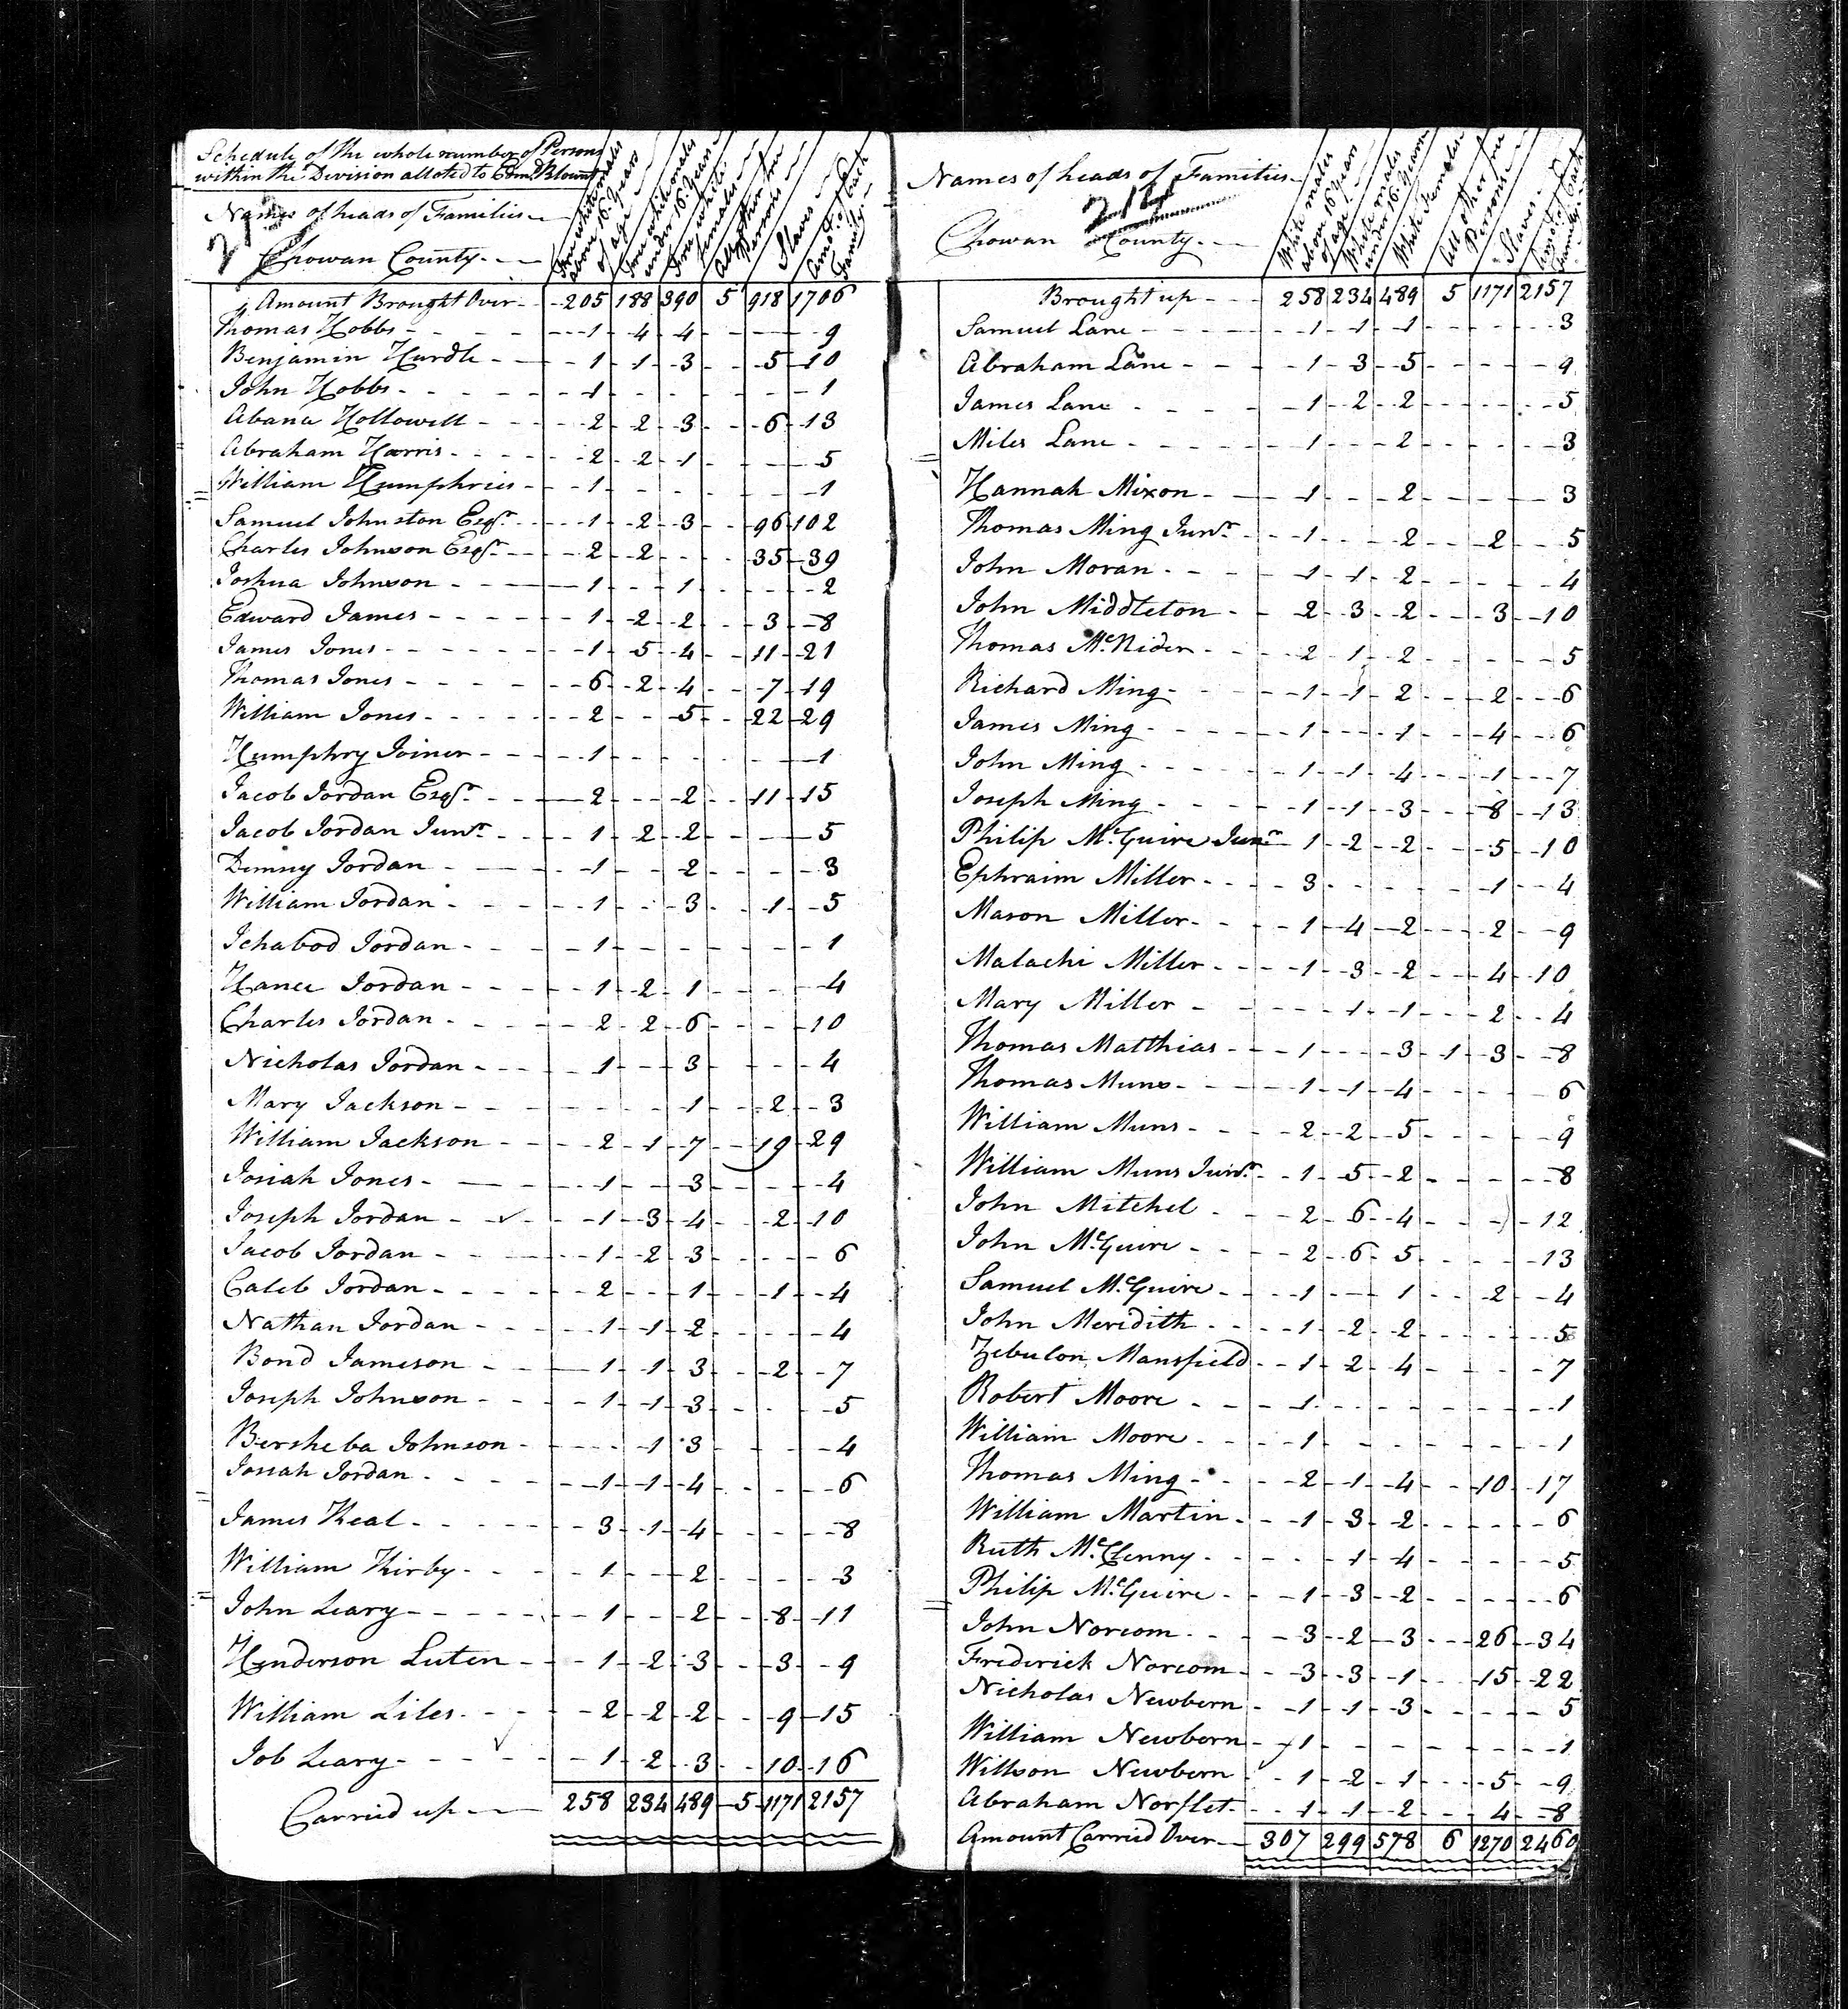 Schedule of the whole number of Persons
within the Division alloted to Edmd. Blount
Names of heads of Families
Chowan County
free white males above 16 Years of age
free white males under 16 Years
free white females
All other free Persons
Slaves
Amot. of Each Family
Amount Brought Over 205 188 390 5 918 1706
Thomas Hobbs 1 4 4 9
Benjamin Hurdle 1 1 3 5 10
John Hobbs 1 1
Abana Hollowell 2 2 3 6 13
Abraham Harris 2 2 1 5
William Humphries 1 1
Samuel Johnston Esqr. 1 2 3 96 102
Charles Johnson Esqr. 2 2 35 39
Joshua Johnson 1 1 2
Edward James 1 2 2 3 8
James Jones 1 5 4 11 21
Thomas Jones 6 2 4 7 19
William Jones 2 5 22 29
Humphry Joiner 1 1
Jacob Jordan Esqr. 2 2 11 15
Jacob Jordan Junr. 1 2 2 5
Demsy Jordan 1 2 3
William Jordan 1 3 1 5
Ichabod Jordan 1 1
Hance Jordan 1 2 1 4
Charles Jordan 2 2 6 10
Nicholas Jordan 1 3 4
Mary Jackson 1 2 3
William Jackson 2 1 7 19 29
Josiah Jones 1 3 4
Joseph Jordan 1 3 4 2 10
Jacob Jordan 1 2 3 6
Caleb Jordan 2 1 1 4
Nathan Jordan 1 1 2 4
Bond Jameson 1 1 3 2 7
Joseph Johnson 1 1 3 5
Bersheba Johnson 1 3 4
Josiah Jordan 1 1 4 6
James Keal 3 1 4 8
William Kirby 1 2 3
John Leary 1 2 8 11
Henderson Luten 1 2 3 3 9
William Liles 2 2 2 9 15
Job Leary 1 2 3 10 16
Carried up 258 234 489 5 1171 2157
Names of heads of Families
Chowan County
White males above 16 Years of age
White males under 16 Years
White Females
All other free Persons
Slaves
Amot. of Each Family
Brought up 258 234 489 5 1171 2157
Samuel Lane 1 1 1 3
Abraham Lane 1 3 5 9
James Lane 1 2 2 5
Miles Lane 1 2 3
Hannah Mixon 1 2 3
Thomas Ming Junr. 1 2 2 5
John Moran 1 1 2 4
John Middleton 2 3 2 3 10
Thomas McNider 2 1 2 5
Richard Ming 1 1 2 2 6
James Ming 1 1 4 6
John Ming 1 1 4 1 7
Joseph Ming 1 1 3 8 13
Philip McGuire Junr 1 2 2 5 10
Ephraim Miller 3 1 4
Mason Miller 1 4 2 2 9
Malachi Miller 1 3 2 4 10
Mary Miller 1 1 2 4
Thomas Matthias 1 3 1 3 8
Thomas Muns 1 1 4 6
William Muns 2 2 5 9
William Muns Junr. 1 5 2 8
John Mitchel 2 6 4 12
John McGuire 2 6 5 13
Samuel McGuire 1 1 2 4
John Meridith 1 2 2 5
Zebulon Mansfield 1 2 4 7
Robert Moore 1 1
William Moore 1 1
Thomas Ming 2 1 4 10 17
William Martin 1 3 2 6
Ruth McClenny 1 4 5
Philip McGuire 1 3 2 6
John Norcom 3 2 3 26 34
Frederick Norcom 3 3 1 15 22
Nicholas Newbern 1 1 3 5
William Newbern 1 1
Willson Newbern 1 2 1 5 9
Abraham Norflet 1 1 2 4 8
Amount Carried Over 307 299 578 6 1270 2460